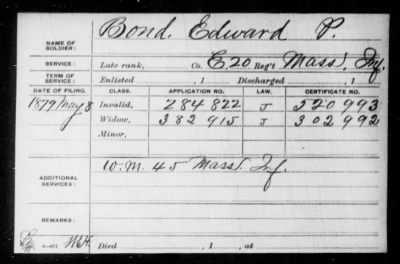 NAME OF SOLDIER: Bond, Edward P.
SERVICE: Late rank, Co. E 20 Reg't Mass. Inf.
TERM OF SERVICE: Enlisted , 1 Discharged , 1
DATE OF FILING. CLASS. APPLICATION NO. LAW. CERTIFICATE NO.
1879 May 8 Invalid, 284822 J 220993
Widow, 382915 J 302992
Minor,
ADDITIONAL SERVICES: W.M. 45 Mass. Inf.
REMARKS:
Died , 1 , at